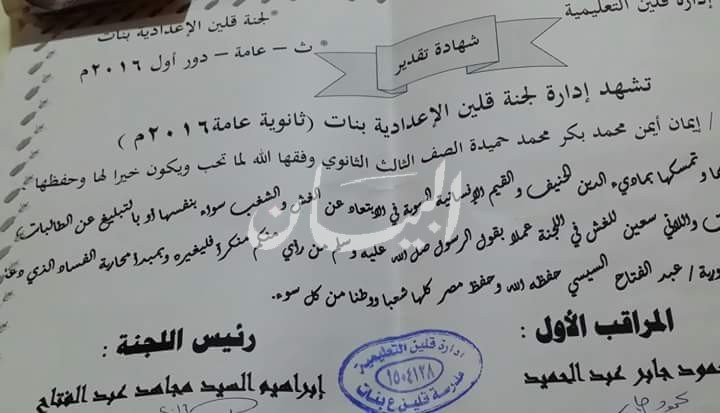 إدارة قلين التعليمية
* لجنة قلين الإعدادية بنات
* ث – عامة – دور أول ٢٠١٦م
شهادة تقدير
تشهد إدارة لجنة قلين الإعدادية بنات (ثانوية عامة ٢٠١٦م )
/ إيمان أيمن محمد بكر محمد حميدة الصف الثالث الثانوي وفقها الله لما تحب ويكون خيرا لها وحفظها
وتمسكها بمبادىء الدين الحنيف و القيم الإنسانية السوية في الابتعاد عن الغش و الشغب سواء بنفسها أو بالتبليغ عن الطالبات
واللاتي سعين للغش في اللجنة عملا بقول الرسول صل الله عليه وسلم من رأي منكم منكرا فليغيره وبمبدأ محاربة الفساد الذي
/ عبد الفتاح السيسي حفظه الله وحفظ مصر كلها شعبا ووطنا من كل سوء.
المراقب الأول :
رئيس اللجنة :
جابر عبد الحميد
إبراهيم السيد مجاهد عبد الفتاح
إدارة قلين التعليمية
١٥٠٤١٢٨
مدرسة قلين ع بنات
البيان